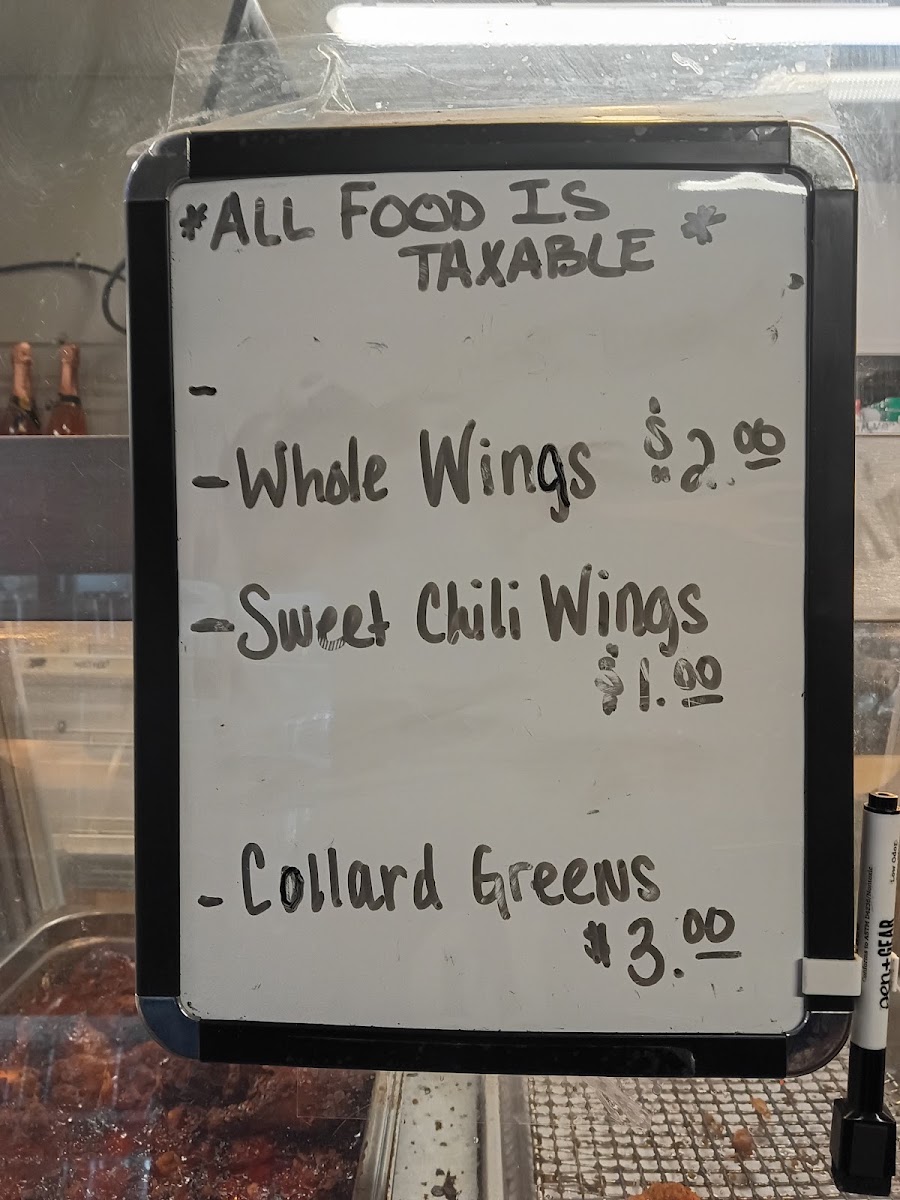 *ALL FOOD IS
TAXABLE *
-
-Whole Wings $2.00
-Sweet Chili Wings
$1.00
-Collard Greens
$3.00
pen+GEAR
Low Odor